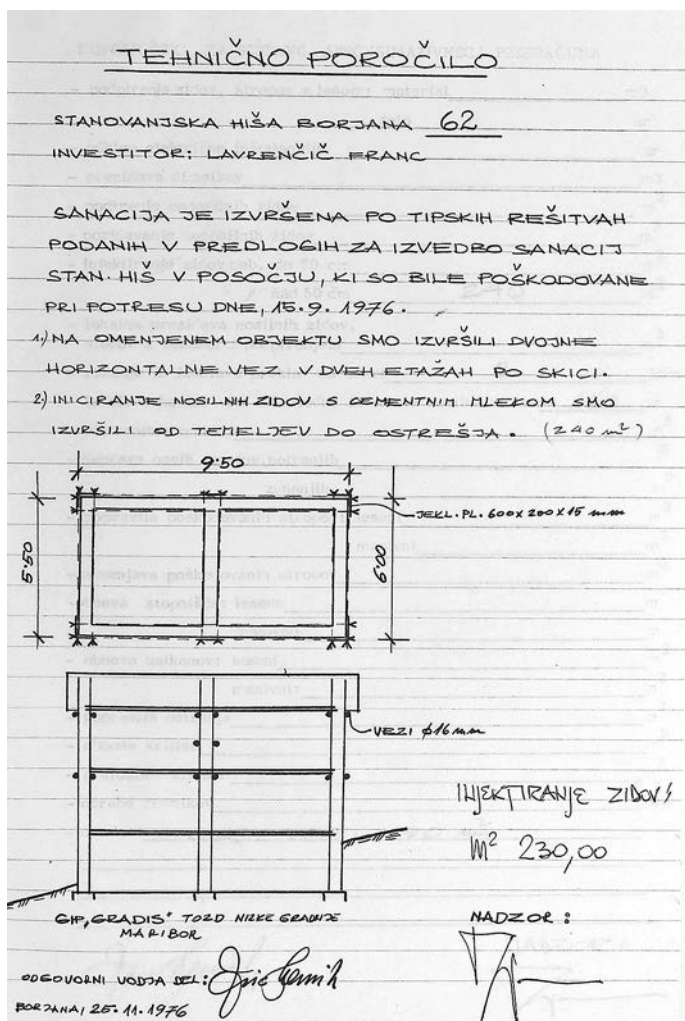 TEHNIČNO POROČILO
STANOVANJSKA HIŠA BORJANA 62
INVESTITOR: LAVRENČIČ FRANC
SANACIJA JE IZVRŠENA PO TIPSKIH REŠITVAH
PODANIH V PREDLOGIH ZA IZVEDBO SANACIJ
STAN HIŠ V POSOČJU, KI SO BILE POŠKODOVANE
PRI POTRESU DNE, 15.9.1976.
1.) NA OMENJENEM OBJEKTU SMO IZVRŠILI DVOJNE
HORIZONTALNE VEZ V DVEH ETAŽAH PO SKICI.
2.) INICIRANJE NOSILNIH ZIDOV S CEMENTNIM MLEKOM SMO
IZVRŠILI OD TEMELJEV DO OSTREŠJA. (240 m²)
9.50
JEKL. PL. 600X200X15 mm
5.50
6.00
VEZI ϕ16mm
INJEKTIRANJE ZIDOV
M² 230,00
GIP „GRADIS" TOZD NIZKE GRADNJE
MARIBOR
NADZOR:
ODGOVORNI VODJA DEL:
BORJANA, 25.11.1976